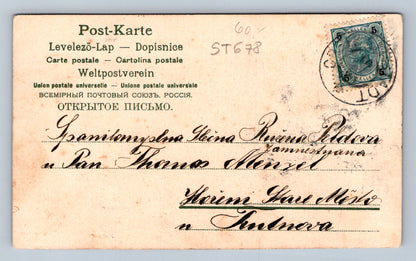 Post-Karte
60,-
Levelező-Lap — Dopisnice
ST678
Carte postale — Cartolina postale
Weltpostverein
Union postale universelle — Unione postale universale
ВСЕМІРНЫЙ ПОЧТОВЫЙ СОЮЗЪ. РОССІЯ.
ОТКРЫТОЕ ПИСЬМО.
5 5
5 5
Růžena
u Pan Thomas Menzel
Hořeni Stare Město
u Trutnova